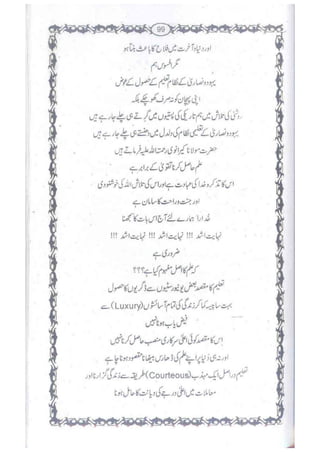 99
اور دنیاء آخرت میں فلاح کا باعث بنتا ہو
مگر افسوس ہم
یہود و نصاریٰ کے نظام تعلیم کے حصول کے عوض
اپنی پہچان کو نہ صرف کھو چکے بلکہ
روشنی کی تلاش میں ہم تاریکی کی پستیوں میں گرتے ہی چلے جا رہے ہیں
یہود و نصاریٰ کے تعلیمی نظام کی دلدل میں دھنستے ہی چلے جا رہے ہیں
حضرت مولانا کیرانوی رحمۃ اللہ علیہ فرماتے ہیں
علم حاصل کرنا تقویٰ کے برابر ہے
اس کا تذکرہ خدا کی عبادت ہے اور اس کی تلاش اللہ کی خوشنودی
اور جنت و راحت کا سامان ہے
خدارا ہمارے لئے آج اس بات کا سمجھنا
نہایت اشد !!! نہایت اشد !!! نہایت اشد !!!
ضروری ہے
کہ علم کا اصل مفہوم کیا ہے؟؟؟
تعلیم کا مقصد بعض یونیورسٹیوں سے ڈگریوں کا حصول
بہت سا پیسہ کما کر زندگی کی تمام آسائشوں (Luxury) سے
فیض یاب ہونا نہیں
اس کا مقصد کوئی اعلیٰ سرکاری منصب حاصل کرنا نہیں
اور نہ ہی دنیا پر اپنے علم کی دھاک بیٹھانا مقصود ہونا چاہے
تعلیم دراصل ایک مہذب (Courteous) طریقہ سے زندگی گزارنا اور
معاملات میں اعلیٰ درجے کی دیانت کا حامل ہونا